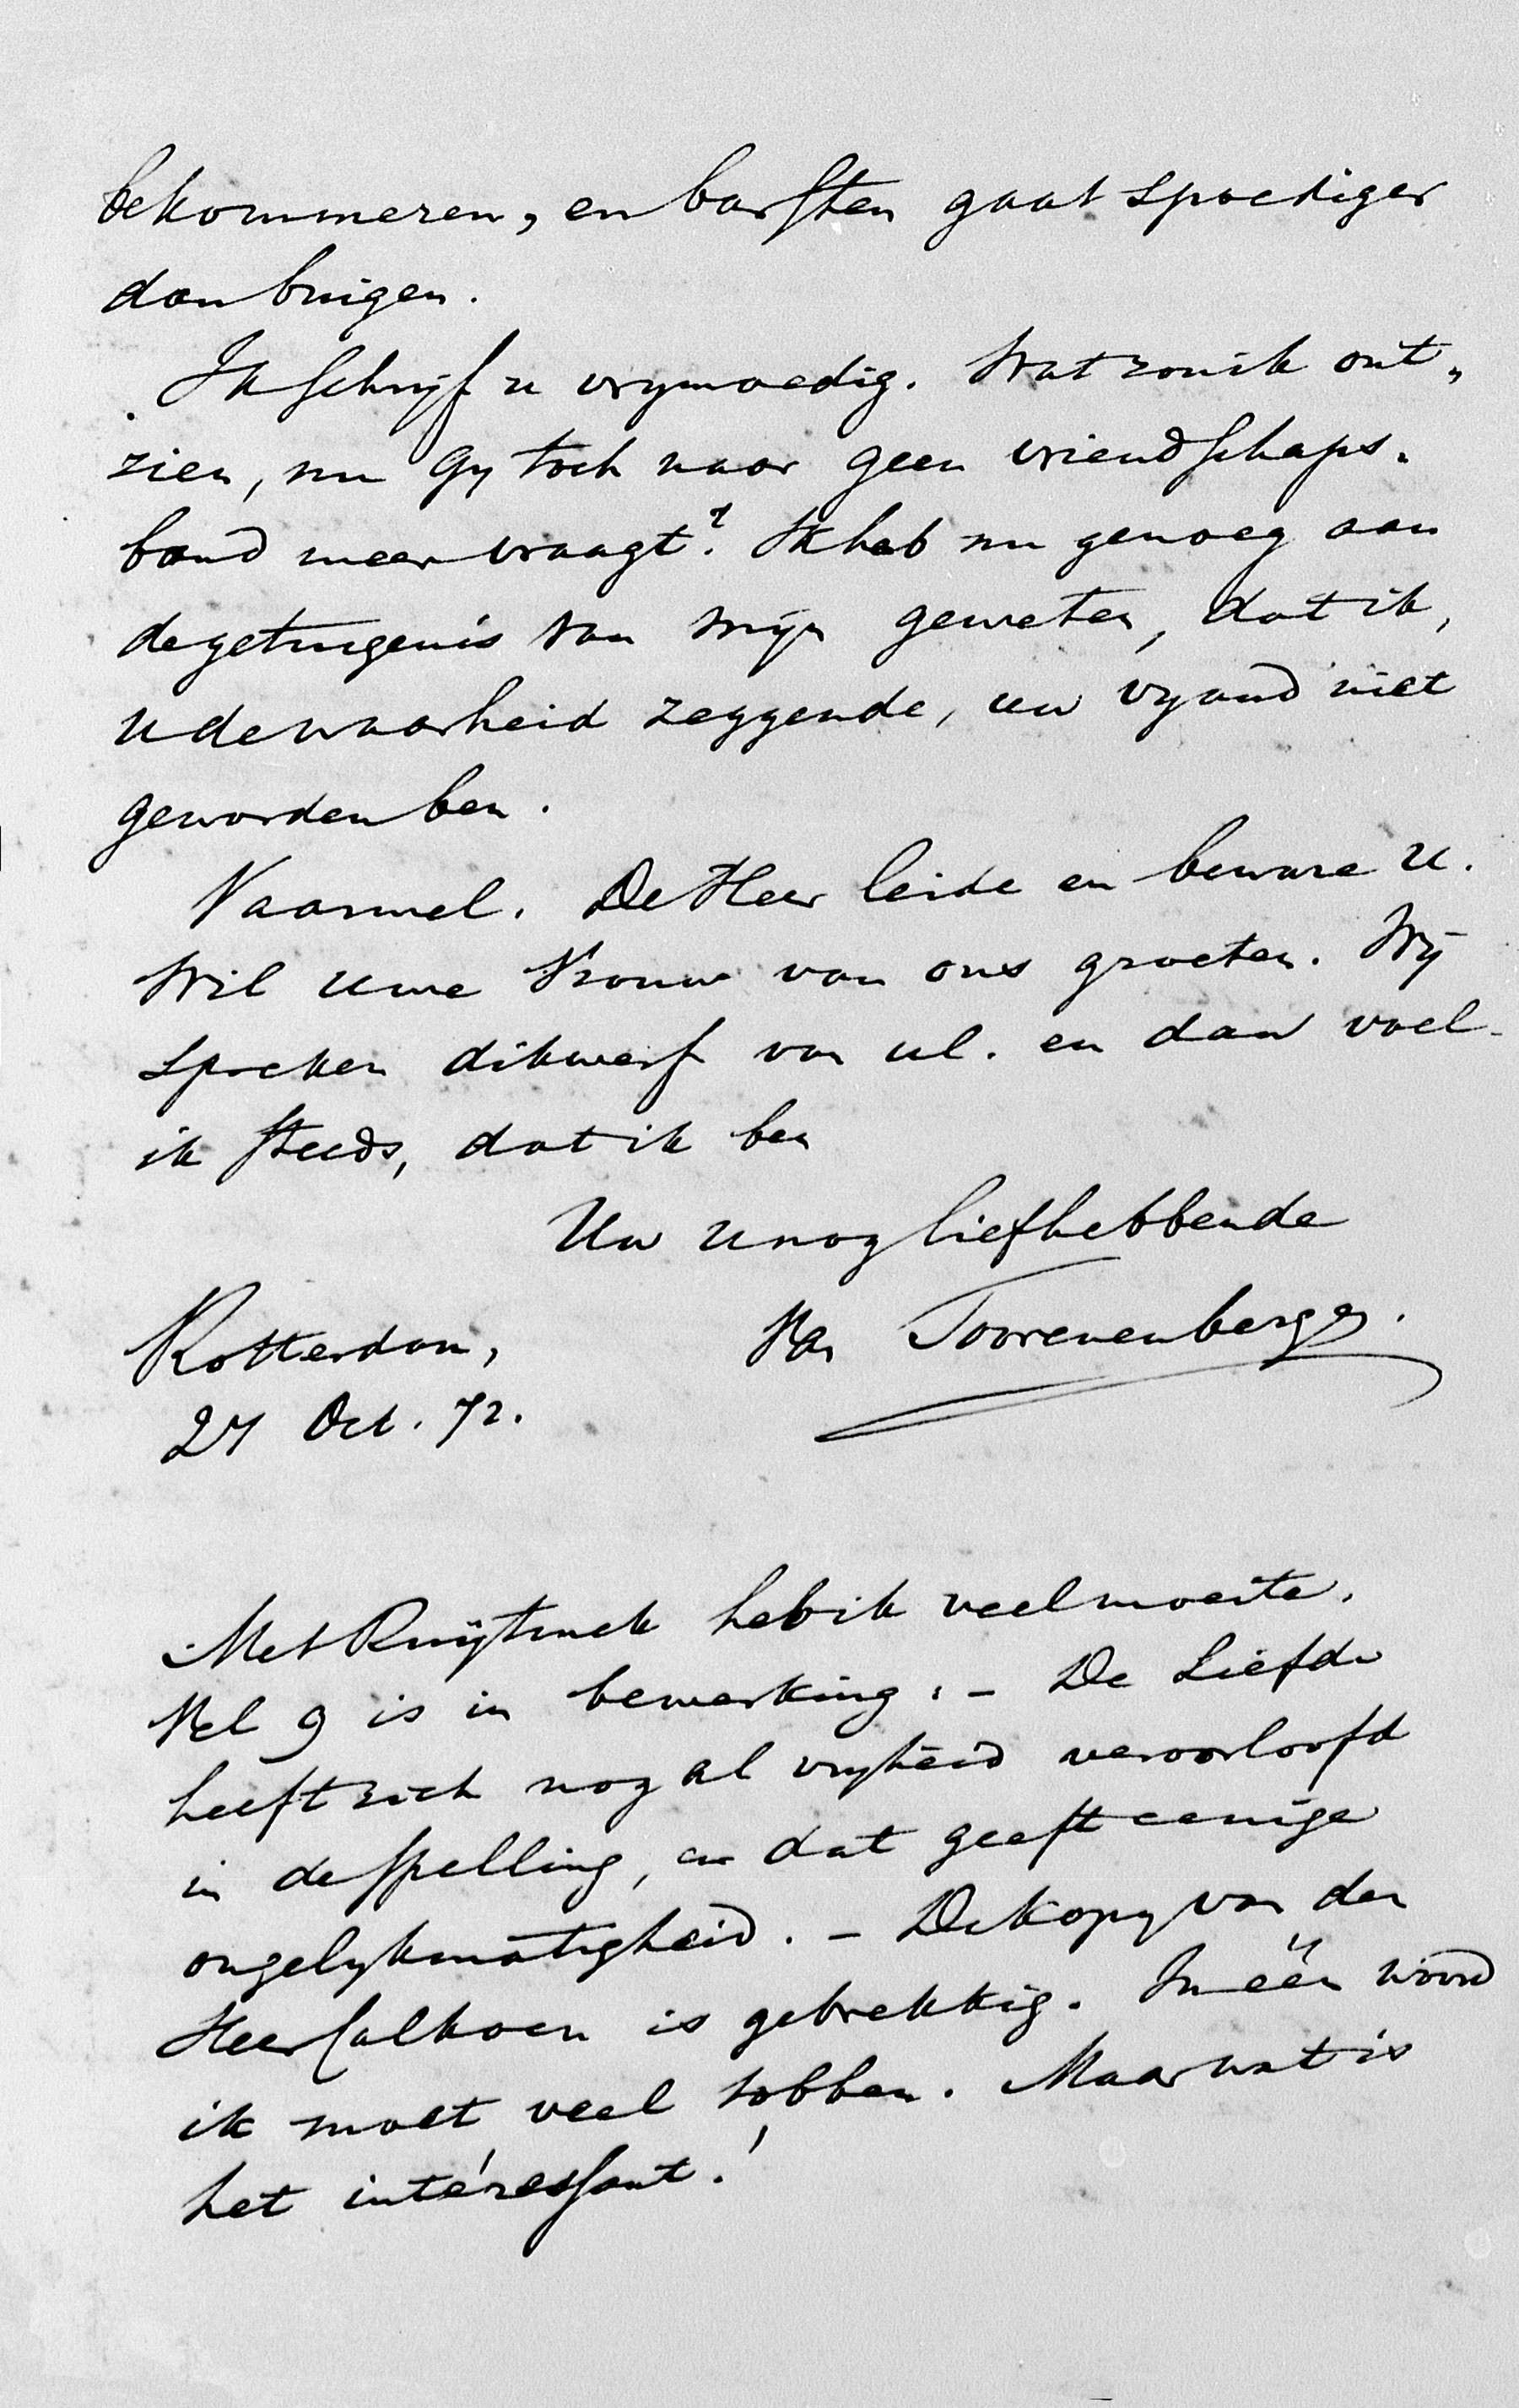 bekommeren, en barsten gaat spoediger
dan buigen.
Ik schrijf u vrymoedig. Wat zou ik ont„
zien, nu Gy toch naar geen vriendschaps„
band meer vraagt? Ik heb nu genoeg aan
de getuigenis van mijn geweten, dat ik,
u de waarheid zeggende, uw vyand niet
geworden ben.
Vaarwel. De Heer leide en beware U.
Wil Uwe Vrouw van ons groeten. Wij
spreken dikwerf van ul. en dan voel
ik steeds, dat ik ben
Uw U nog liefhebbende
Rotterdam,
Van Toorenenbergen.
27 Oct. 72.
Met Ruijtinck heb ik veel moeite.
Vel 9 is in bewerking. – De Liefde
heeft zich nog al vryheid veroorloofd
in de spelling, en dat geeft eenige
ongelykmatigheid. – De kopy van den
Heer Calkoen is gebrekkig. In één woord
ik moet veel tobben. Maar wat is
het intéressant!